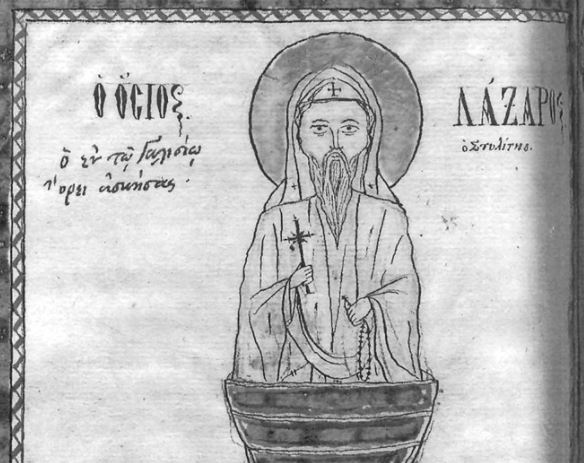 Ὁ ὍΣΙΟς
ὁ ἐν τῶ Γαλισίῳ
ὄρει ἀσκήσας.
ΛΆΖΑΡΟς
ὁ Στυλίτης.